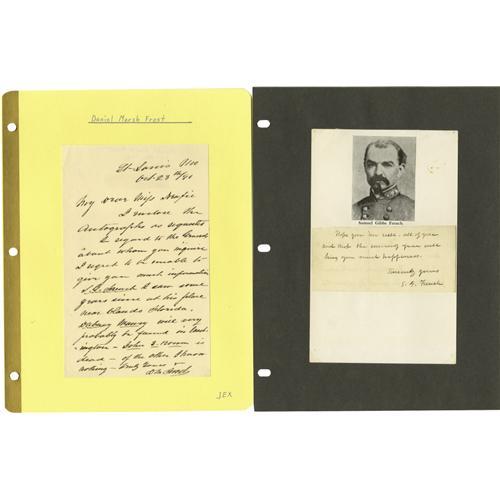 Daniel Marsh Frost
St. Louis Mo
Oct 23
My Dear Miss
I enclose the
Autographs as requested
In regard to the Generals
about whom you inquire
I regret to be unable to
give you much information
S. G. French I saw some
years since at his place
near Orlando Florida.
Dabney Maury will very
probably be found in Wash-
ington - John is
dead - of the other I know
nothing - Truly Yours
D M Frost
JEX
Samuel Gibbs French.
Hope you are well - all of you
and that the coming year will
bring you much happiness.
Sincerely yours
S. G. French